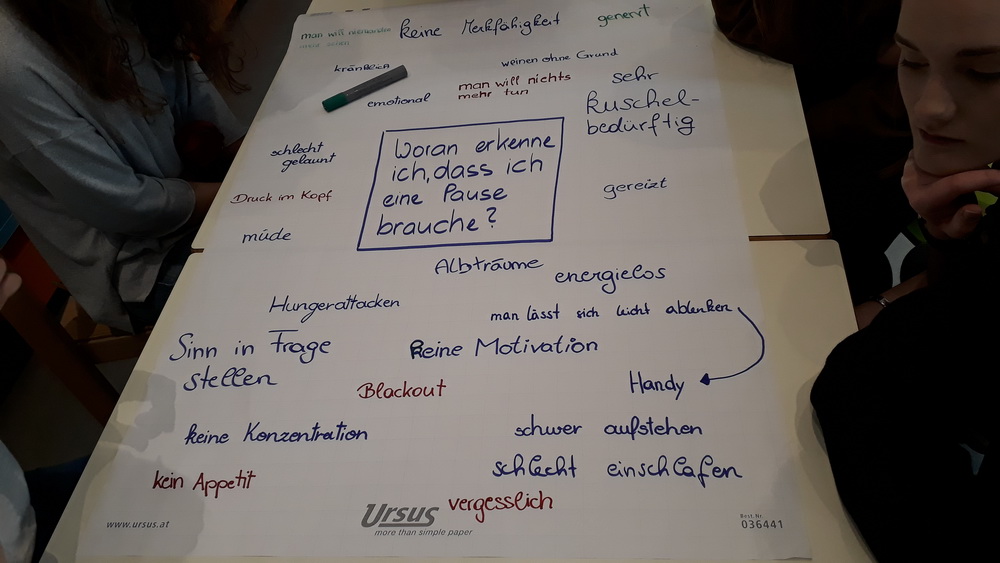 man will niemanden
mehr sehen
keine Merkfähigkeit
genervt
kränklich
weinen ohne Grund
emotional
man will nichts
mehr tun
sehr
kuschel-
bedürftig
schlecht
gelaunt
Woran erkenne
ich, dass ich
eine Pause
brauche?
gereizt
Druck im Kopf
müde
Albträume
energielos
Hungerattacken
man lässt sich leicht ablenken
Sinn in Frage
stellen
keine Motivation
Handy
Blackout
keine Konzentration
schwer aufstehen
schlecht einschlafen
kein Appetit
vergesslich
www.ursus.at
Ursus
more than simple paper
Best. Nr.
036441